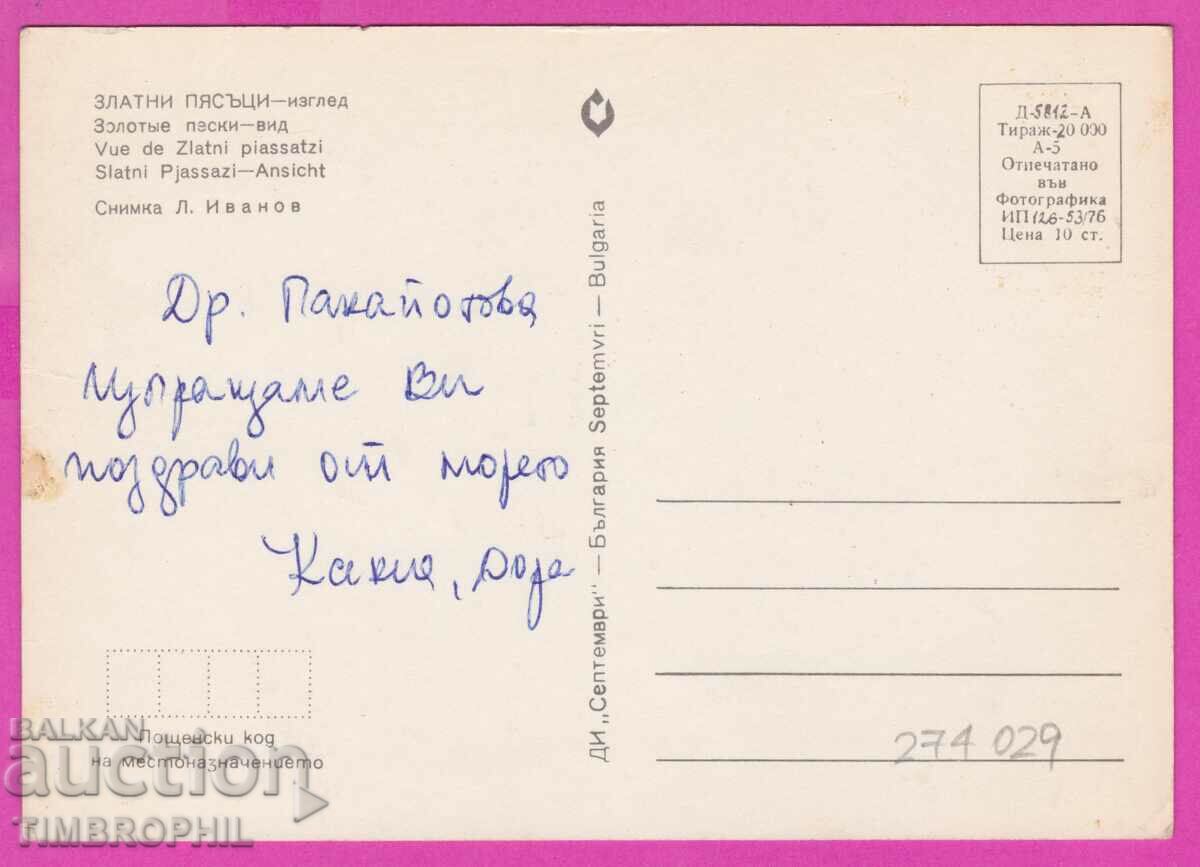 ЗЛАТНИ ПЯСЪЦИ—изглед
Золотые пески—вид
Vue de Zlatni piassatzi
Slatni Pjassazi—Ansicht
Снимка Л. Иванов
Др. Панайотова
Изпращаме Ви
поздрави от морето
ДИ „Септември" — България Septemvri — Bulgaria
Д-5812-А
Тираж-20 000
А-5
Отпечатано
във
Фотографика
ИП 126-53/76
Цена 10 ст.
Пощенски код
на местоназначението
274 029
BALKAN
auction
TIMBROPHIL